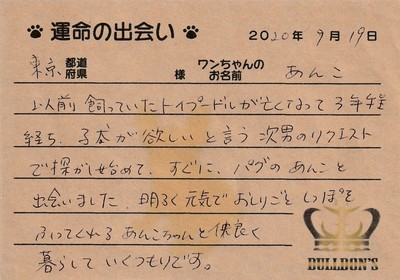 運命の出会い 2020年9月19日
東京 都道府県 様 ワンちゃんのお名前 あんこ
以前飼っていたトイプードルが亡くなって3年程
経ち、子犬が欲しいと言う次男のリクエスト
で探がし始めて、すぐに、パグのあんこと
出会いました。明るく元気でおしりごとしっぽを
ふってくれるあんこちゃんと仲良く
暮らしていくつもりです。
BULLBON'S